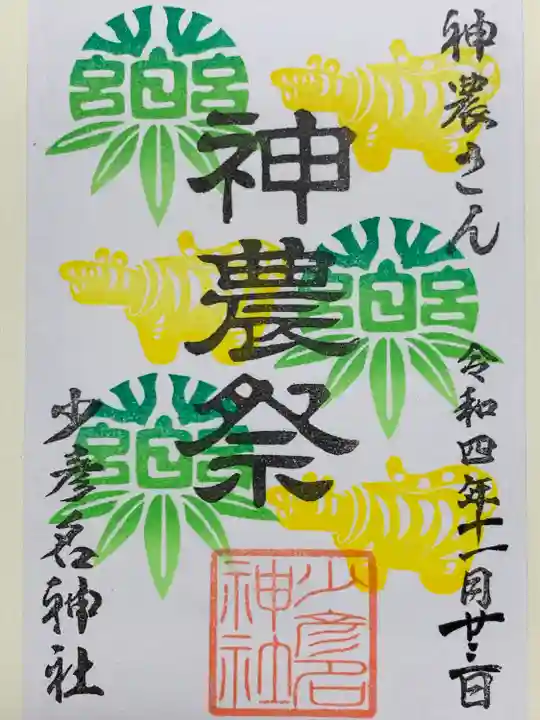 神農さん
令和四年十一月廿二日
神農祭
少彦名神社
少彦名
神社